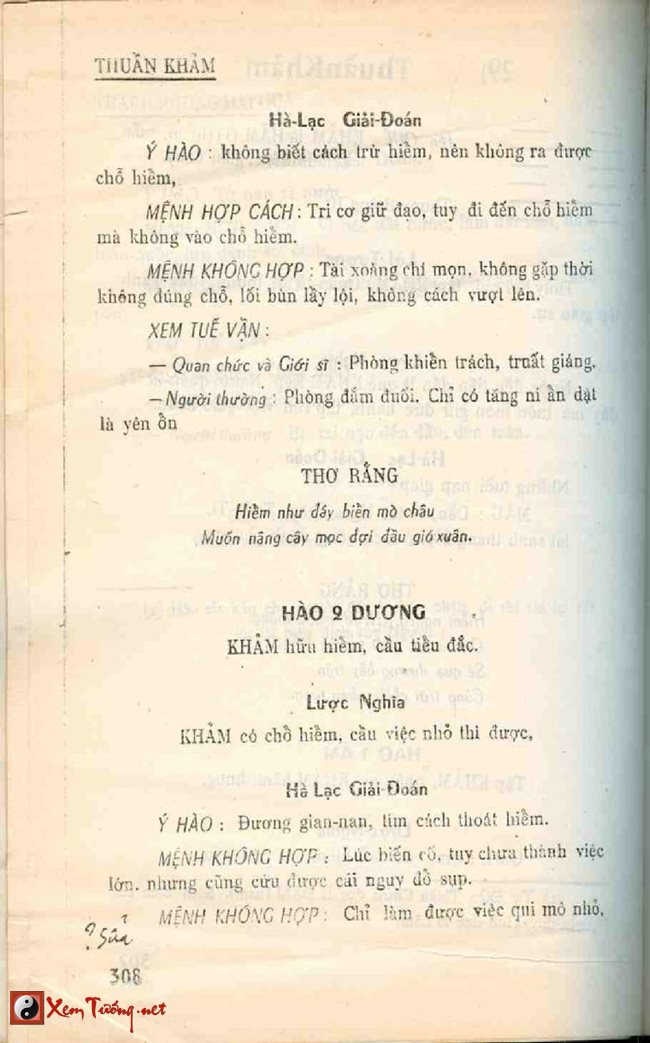 THUẦN KHẢM
Hà-Lạc Giải-Đoán
Ý HÀO : không biết cách trừ hiểm, nên không ra được
chỗ hiểm,
MỆNH HỢP CÁCH : Tri cơ giữ đạo, tuy đi đến chỗ hiểm
mà không vào chỗ hiểm.
MỆNH KHÔNG HỢP : Tài xoàng chí mọn, không gặp thời
không đúng chỗ, lối bùn lầy lội, không cách vượt lên.
XEM TUẾ VẬN :
— Quan chức và Giới sĩ : Phòng khiển trách, truất giáng.
— Người thường : Phòng đắm đuối. Chỉ có tăng ni ẩn dật
là yên ổn
THƠ RẰNG
Hiểm như đáy biển mò châu
Muốn nâng cây mọc đợi đầu gió xuân.
HÀO 2 DƯƠNG
KHẢM hữu hiểm, cầu tiểu đắc.
Lược Nghĩa
KHẢM có chỗ hiểm, cầu việc nhỏ thì được,
Hà Lạc Giải-Đoán
Ý HÀO : Đương gian-nan, tìm cách thoát hiểm.
MỆNH KHÔNG HỢP : Lúc biến cố, tuy chưa thành việc
lớn. nhưng cũng cứu được cái nguy đổ sụp.
MỆNH KHÔNG HỢP : Chỉ làm được việc qui mô nhỏ,
? Sửa
308
XemTướng.net